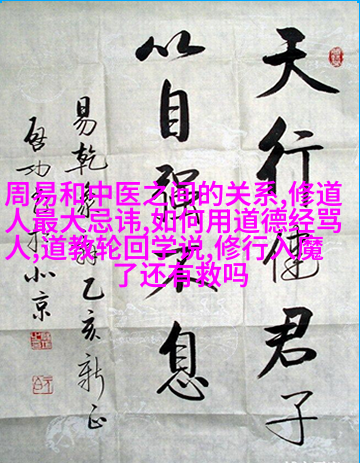 天行健君子
以自强不息
易乾象乙亥新正
启功北京
周易和中医之间的关系,修道
人最大忌讳,如何用道德经骂
人,道教轮回学说,修行入魔
了还有救吗